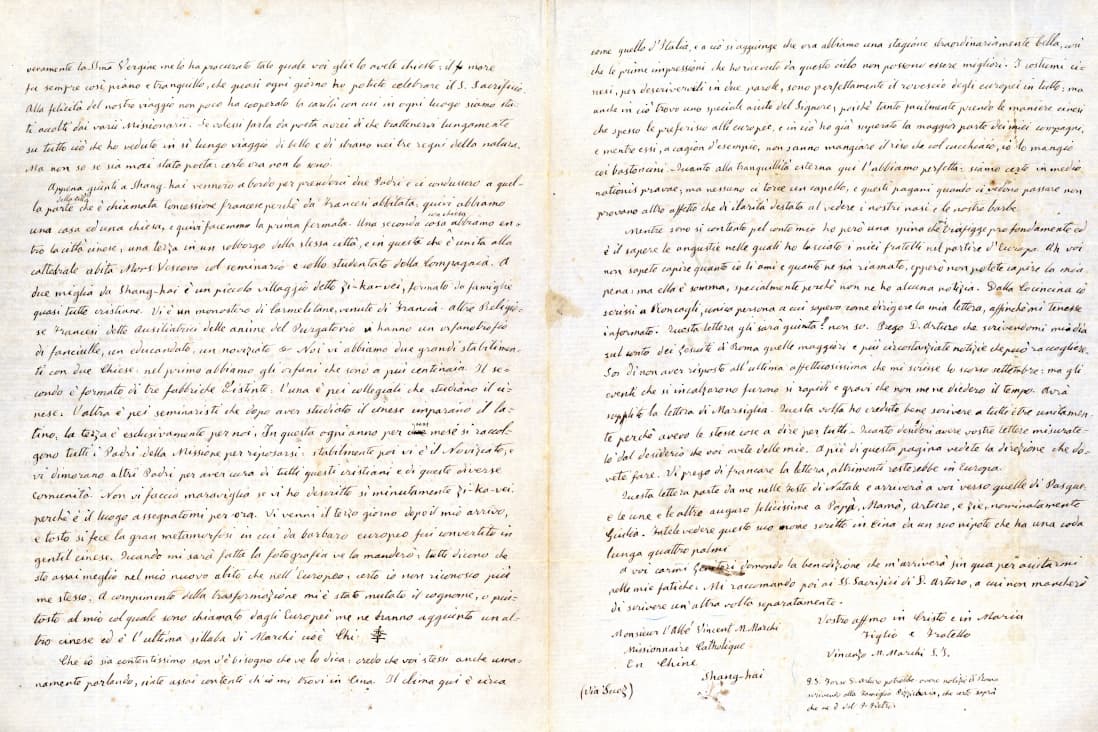 veramente la SSma Vergine me lo ha procurato tale quale voi glielo avete chiesto: il mare
fu sempre così piano e tranquillo, che quasi ogni giorno ho potuto celebrare il S. Sacrificio.
Alla felicità del nostro viaggio non poco ha cooperato la carità con cui in ogni luogo siamo sta-
ti accolti dai varii Missionarii. Se volessi farla da poeta avrei di che trattenervi lungamente
su tutto ciò che ho veduto in sì lungo viaggio di bello e di strano nei tre regni della natura.
Ma non so se sia mai stato poeta: certo ora non lo sono.
Appena giunti a Shang-hai vennero a bordo per prenderci due Padri e ci condussero a quel-
la parte della città che è chiamata Concessione francese perchè da Francesi abitata: quivi abbiamo
una casa ed una chiesa, e quivi facemmo la prima fermata. Una seconda casa con chiesa abbiamo en-
tro la città cinese, una terza in un sobborgo della stessa città, e in questa che è unita alla
cattedrale abita Mons Vescovo col seminario e collo studentato della Compagnia. A
due miglia da Shang-hai è un piccolo villaggio detto Zi-ka-vei, formato da famiglie
quasi tutte cristiane. Vi è un monastero di Carmelitane, venute di Francia. altre Religio-
se Francesi dette Ausiliatrici delle anime del Purgatorio vi hanno un orfanotrofio
di fanciulle, un educandato, un noviziato Noi vi abbiamo due grandi stabilimen-
ti con due Chiese: nel primo abbiamo gli orfani che sono a più centinaia. Il se-
condo è formato di tre fabbriche distinte: l'una è pei collegiali che studiano il ci-
nese. L'altra è pei seminaristi che dopo aver studiato il cinese imparano il la-
tino, la terza è esclusivamente per noi. In questa ogni anno per mesi si raccol-
gono tutti i Padri della Missione per riposarsi: stabilmente poi vi è il Noviziato, e
vi dimorano altri Padri per aver cura di tutti questi cristiani e di queste diverse
comunità. Non vi faccia maraviglia se vi ho descritto sì minutamente Zi-ka-vei.
perchè è il luogo assegnatomi per ora. Vi venni il terzo giorno dopo il mio arrivo,
e tosto si fece la gran metamorfosi in cui da barbaro europeo fui convertito in
gentil cinese. Quando mi sarà fatta la fotografia ve la manderò: tutti dicono che
sto assai meglio nel mio nuovo abito che nell'Europeo, certo io non riconosco più
me stesso. A compimento della trasformazione mi è stato mutato il cognome, o piut-
tosto al mio col quale sono chiamato dagli Europei me ne hanno aggiunto un al-
tro cinese ed è l'ultima sillaba di Marchi cioè Chi
Che io sia contentissimo non v'è bisogno che ve lo dica: credo che voi stessi anche uma-
namente parlando, siate assai contenti ch'io mi trovi in Cina. Il clima qui è circa
come quello d'Italia, e a ciò si aggiunge che ora abbiamo una stagione straordinariamente bella, così
che le prime impressioni che ho ricevuto da questo cielo non possono essere migliori. I costumi ci-
nesi, per descriverveli in due parole, sono perfettamente il rovescio degli europei in tutto; ma
anche in ciò trovo uno speciale aiuto del Signore, poichè tanto facilmente prendo le maniere cinesi
che spesso le preferisco alle europee, e in ciò ho già superato la maggior parte dei miei compagni,
e mentre essi, a cagion d'esempio, non sanno mangiare il riso che col cucchiaio, io lo mangio
coi bastoncini. Quanto alla tranquillità esterna qui l'abbiamo perfetta: siamo certo in medio
nationis pravae; ma nessuno ci torce un capello, e questi pagani quando ci vedono passare non
provano altro affetto che di ilarità destata al vedere i nostri nasi e le nostre barbe.
Mentre sono sì contento pel conto mio ho però una spina che trafigge profondamente ed
è il sapere le angustie nelle quali ho lasciato i miei fratelli nel partire d'Europa. Ah voi
non sapete capire quanto io li ami e quanto ne sia riamato, epperò non potete capire la mia
pena: ma ella è somma, specialmente perchè non ne ho alcuna notizia. Dalla Cocincina io
scrissi a Roncagli, unica persona a cui sapevo come dirigere la mia lettera, affinchè mi tenesse
informato. Questa lettera gli sarà giunta? non so. Prego D. Arturo che scrivendomi mi dia
sul conto dei Gesuiti di Roma quelle maggiori e più circostanziate notizie che può raccogliere.
So di non aver risposto all'ultima affettuosissima che mi scrisse lo scorso settembre: ma gli
eventi che s'incalzarono furono sì rapidi e gravi che non me ne diedero il tempo. Avrà
supplito la lettera di Marsiglia. Questa volta ho creduto bene scrivere a tutti e tre unitamen-
te perchè avevo le stesse cose a dire per tutti. Quanto desideri avere vostre lettere misurate-
lo dal desiderio che voi avete delle mie. A piè di questa pagina vedete la direzione che do-
vete fare. Vi prego di francare la lettera, altrimenti resterebbe in Europa.
Questa lettera parte da me nelle feste di Natale e arriverà a voi verso quelle di Pasqua,
e le une e le altre auguro felicissime a Papà, Mamà, Arturo, e zie, nominatamente
Giulia. Fatele vedere questo suo nome scritto in Cina da un suo nipote che ha una coda
lunga quattro palmi
A voi carini Genitori domando la benedizione che m'arriverà sin qua per aiutarmi
nelle mie fatiche. Mi raccomando poi ai SS. Sacrifici di D. Arturo, a cui non mancherò
di scrivere un'altra volta separatamente.
Vostro affmo in Cristo e in Maria
Figlio e Fratello
Vincenzo M. Marchi S.J.
Monsieur l'Abbé Vincent M. Marchi
Missionnaire Catholique
En Chine
Shang-hai
(Via Suez)
P.S. Forse D. Arturo potrebbe avere notizie di Roma
scrivendo alla famiglia che certo saprà
che ne è del P. Pietro.